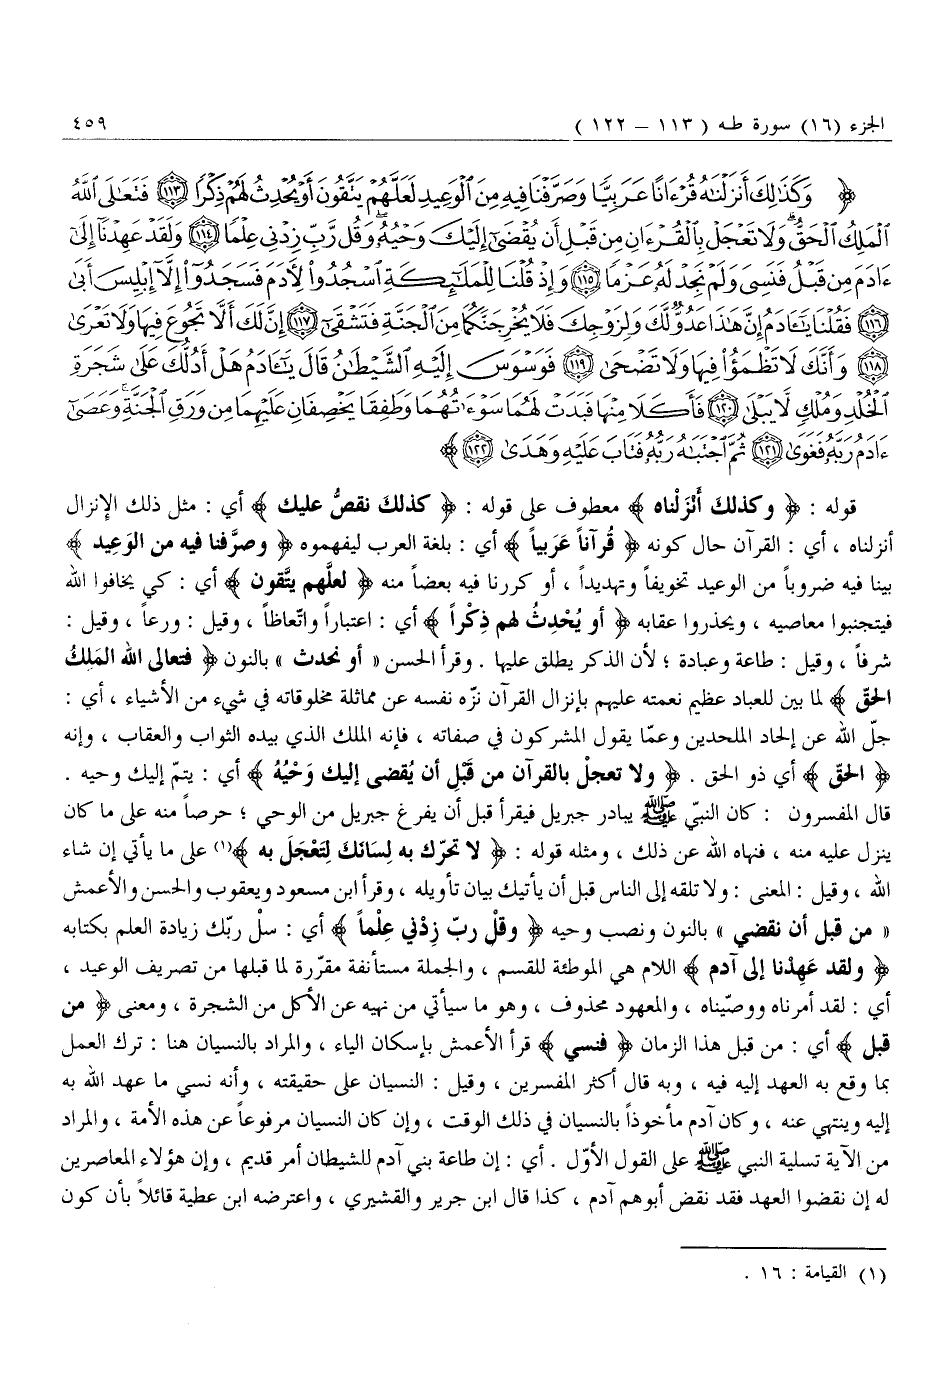 الجزء (١٦) سورة طه ( ١١٣ – ١٢٢ ) ٤٥٩
﴿ وَكَذَٰلِكَ أَنزَلْنَٰهُ قُرْءَانًا عَرَبِيًّا وَصَرَّفْنَا فِيهِ مِنَ ٱلْوَعِيدِ لَعَلَّهُمْ يَتَّقُونَ أَوْ يُحْدِثُ لَهُمْ ذِكْرًا ١١٣ فَتَعَٰلَى ٱللَّهُ
ٱلْمَلِكُ ٱلْحَقُّ ۗ وَلَا تَعْجَلْ بِٱلْقُرْءَانِ مِن قَبْلِ أَن يُقْضَىٰٓ إِلَيْكَ وَحْيُهُۥ ۖ وَقُل رَّبِّ زِدْنِى عِلْمًا ١١٤ وَلَقَدْ عَهِدْنَآ إِلَىٰٓ
ءَادَمَ مِن قَبْلُ فَنَسِىَ وَلَمْ نَجِدْ لَهُۥ عَزْمًا ١١٥ وَإِذْ قُلْنَا لِلْمَلَٰٓئِكَةِ ٱسْجُدُوا۟ لِءَادَمَ فَسَجَدُوٓا۟ إِلَّآ إِبْلِيسَ أَبَىٰ
١١٦ فَقُلْنَا يَٰٓـَٔادَمُ إِنَّ هَٰذَا عَدُوٌّ لَّكَ وَلِزَوْجِكَ فَلَا يُخْرِجَنَّكُمَا مِنَ ٱلْجَنَّةِ فَتَشْقَىٰٓ ١١٧ إِنَّ لَكَ أَلَّا تَجُوعَ فِيهَا وَلَا تَعْرَىٰ
١١٨ وَأَنَّكَ لَا تَظْمَؤُا۟ فِيهَا وَلَا تَضْحَىٰ ١١٩ فَوَسْوَسَ إِلَيْهِ ٱلشَّيْطَٰنُ قَالَ يَٰٓـَٔادَمُ هَلْ أَدُلُّكَ عَلَىٰ شَجَرَةِ
ٱلْخُلْدِ وَمُلْكٍ لَّا يَبْلَىٰ ١٢٠ فَأَكَلَا مِنْهَا فَبَدَتْ لَهُمَا سَوْءَٰتُهُمَا وَطَفِقَا يَخْصِفَانِ عَلَيْهِمَا مِن وَرَقِ ٱلْجَنَّةِ ۚ وَعَصَىٰٓ
ءَادَمُ رَبَّهُۥ فَغَوَىٰ ١٢١ ثُمَّ ٱجْتَبَٰهُ رَبُّهُۥ فَتَابَ عَلَيْهِ وَهَدَىٰ ١٢٢ ﴾
قوله : ﴿ وكذلك أَنْزَلْناه ﴾ معطوف على قوله : ﴿ كذلك نقصُّ عليك ﴾ أي : مثل ذلك الإنزال
أنزلناه ، أي : القرآن حال كونه ﴿ قُرآناً عَرَبياً ﴾ أي : بلغة العرب ليفهموه ﴿ وصرَّفنا فيه من الوَعِيد ﴾
بينا فيه ضروباً من الوعيد تخويفاً وتهديداً ، أو كررنا فيه بعضاً منه ﴿ لعلَّهم يتَّقون ﴾ أي : كي يخافوا الله
فيتجنبوا معاصيه ، ويحذروا عقابه ﴿ أو يُحْدِثُ لهم ذِكْراً ﴾ أي : اعتباراً واتّعاظاً ، وقيل : ورعاً ، وقيل :
شرفاً ، وقيل : طاعة وعبادة ؛ لأن الذكر يطلق عليها . وقرأ الحسن « أو نحدث » بالنون ﴿ فتعالى الله المَلِكُ
الحقّ ﴾ لما بين للعباد عظيم نعمته عليهم بإنزال القرآن نزّه نفسه عن مماثلة مخلوقاته في شيء من الأشياء ، أي :
جلّ الله عن إلحاد الملحدين وعمّا يقول المشركون في صفاته ، فإنه الملك الذي بيده الثواب والعقاب ، وإنه
﴿ الحقّ ﴾ أي ذو الحق . ﴿ ولا تعجلْ بالقرآن من قَبْلِ أن يُقضى إليك وَحْيُهُ ﴾ أي : يتمّ إليك وحيه .
قال المفسرون : كان النبيّ ﷺ يبادر جبريل فيقرأ قبل أن يفرغ جبريل من الوحي ؛ حرصاً منه على ما كان
ينزل عليه منه ، فنهاه الله عن ذلك ، ومثله قوله : ﴿ لا تحرّك به لِسَانَكَ لِتَعْجَلَ به ﴾(١) على ما يأتي إن شاء
الله ، وقيل : المعنى : ولا تلقه إلى الناس قبل أن يأتيك بيان تأويله ، وقرأ ابن مسعود ويعقوب والحسن والأعمش
« من قبل أن نقضي » بالنون ونصب وحيه ﴿ وقلْ ربّ زِدْني عِلْماً ﴾ أي : سلْ ربّك زيادة العلم بكتابه
﴿ ولقد عَهِدْنا إلى آدم ﴾ اللام هي الموطئة للقسم ، والجملة مستأنفة مقرّرة لما قبلها من تصريف الوعيد ،
أي : لقد أمرناه ووصّيناه ، والمعهود محذوف ، وهو ما سيأتي من نهيه عن الأكل من الشجرة ، ومعنى ﴿ من
قبل ﴾ أي : من قبل هذا الزمان ﴿ فنسي ﴾ قرأ الأعمش بإسكان الياء ، والمراد بالنسيان هنا : ترك العمل
بما وقع به العهد إليه فيه ، وبه قال أكثر المفسرين ، وقيل : النسيان على حقيقته ، وأنه نسي ما عهد الله به
إليه وينتهي عنه ، وكان آدم مأخوذاً بالنسيان في ذلك الوقت ، وإن كان النسيان مرفوعاً عن هذه الأمة ، والمراد
من الآية تسلية النبي ﷺ على القول الأوّل . أي : إن طاعة بني آدم للشيطان أمر قديم ، وإن هؤلاء المعاصرين
له إن نقضوا العهد فقد نقض أبوهم آدم ، كذا قال ابن جرير والقشيري ، واعترضه ابن عطية قائلاً بأن كون
(١) القيامة : ١٦ .